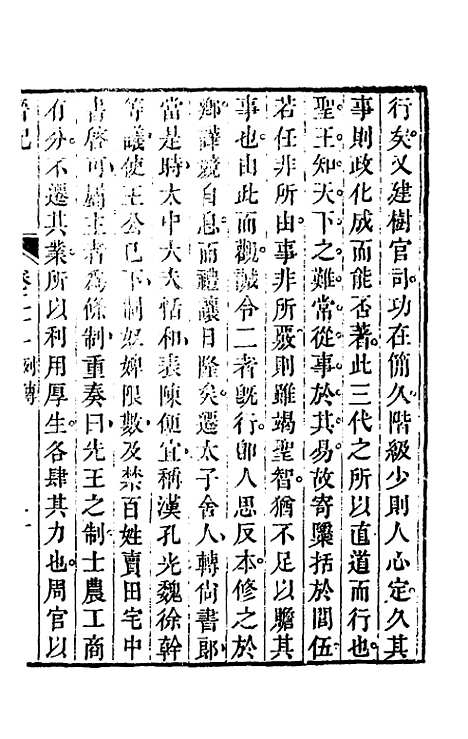 行矣又建樹官司功在簡久階級少則人心定久其
事則政化成而能否著此三代之所以直道而行也
聖王知天下之難常從事於其易故寄隱括於閭伍
若任非所由事非所覈則雖竭聖智猶不足以贍其
事也由此而觀誠令二者旣行卽人思反本修之於
鄕譁競自息而禮讓日隆矣遷太子舍人轉尙書郞
當是時太中大夫恬和表陳便宜稱漢孔光魏徐幹
等議使王公已下制奴婢限數及禁百姓賣田宅中
書啓可屬主者爲條制重奏曰先王之制士農工商
有分不遷其業所以利用厚生各肆其力也周官以
晉記
列傳